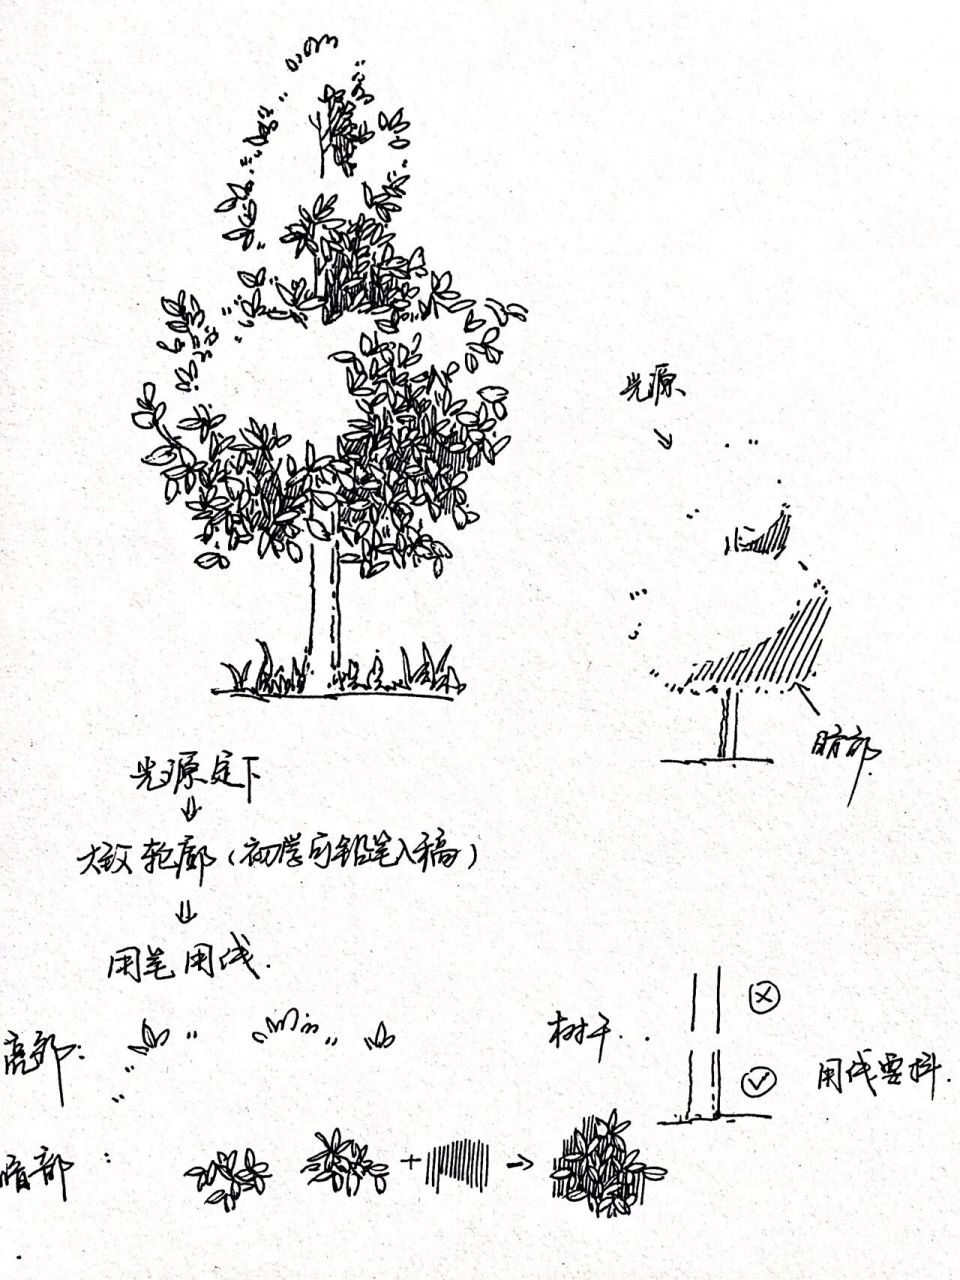 光源
暗部
光源定下
大致轮廓(初学可铅笔入稿)
用笔用线.
亮部:
树干.
用线要抖.
暗部: